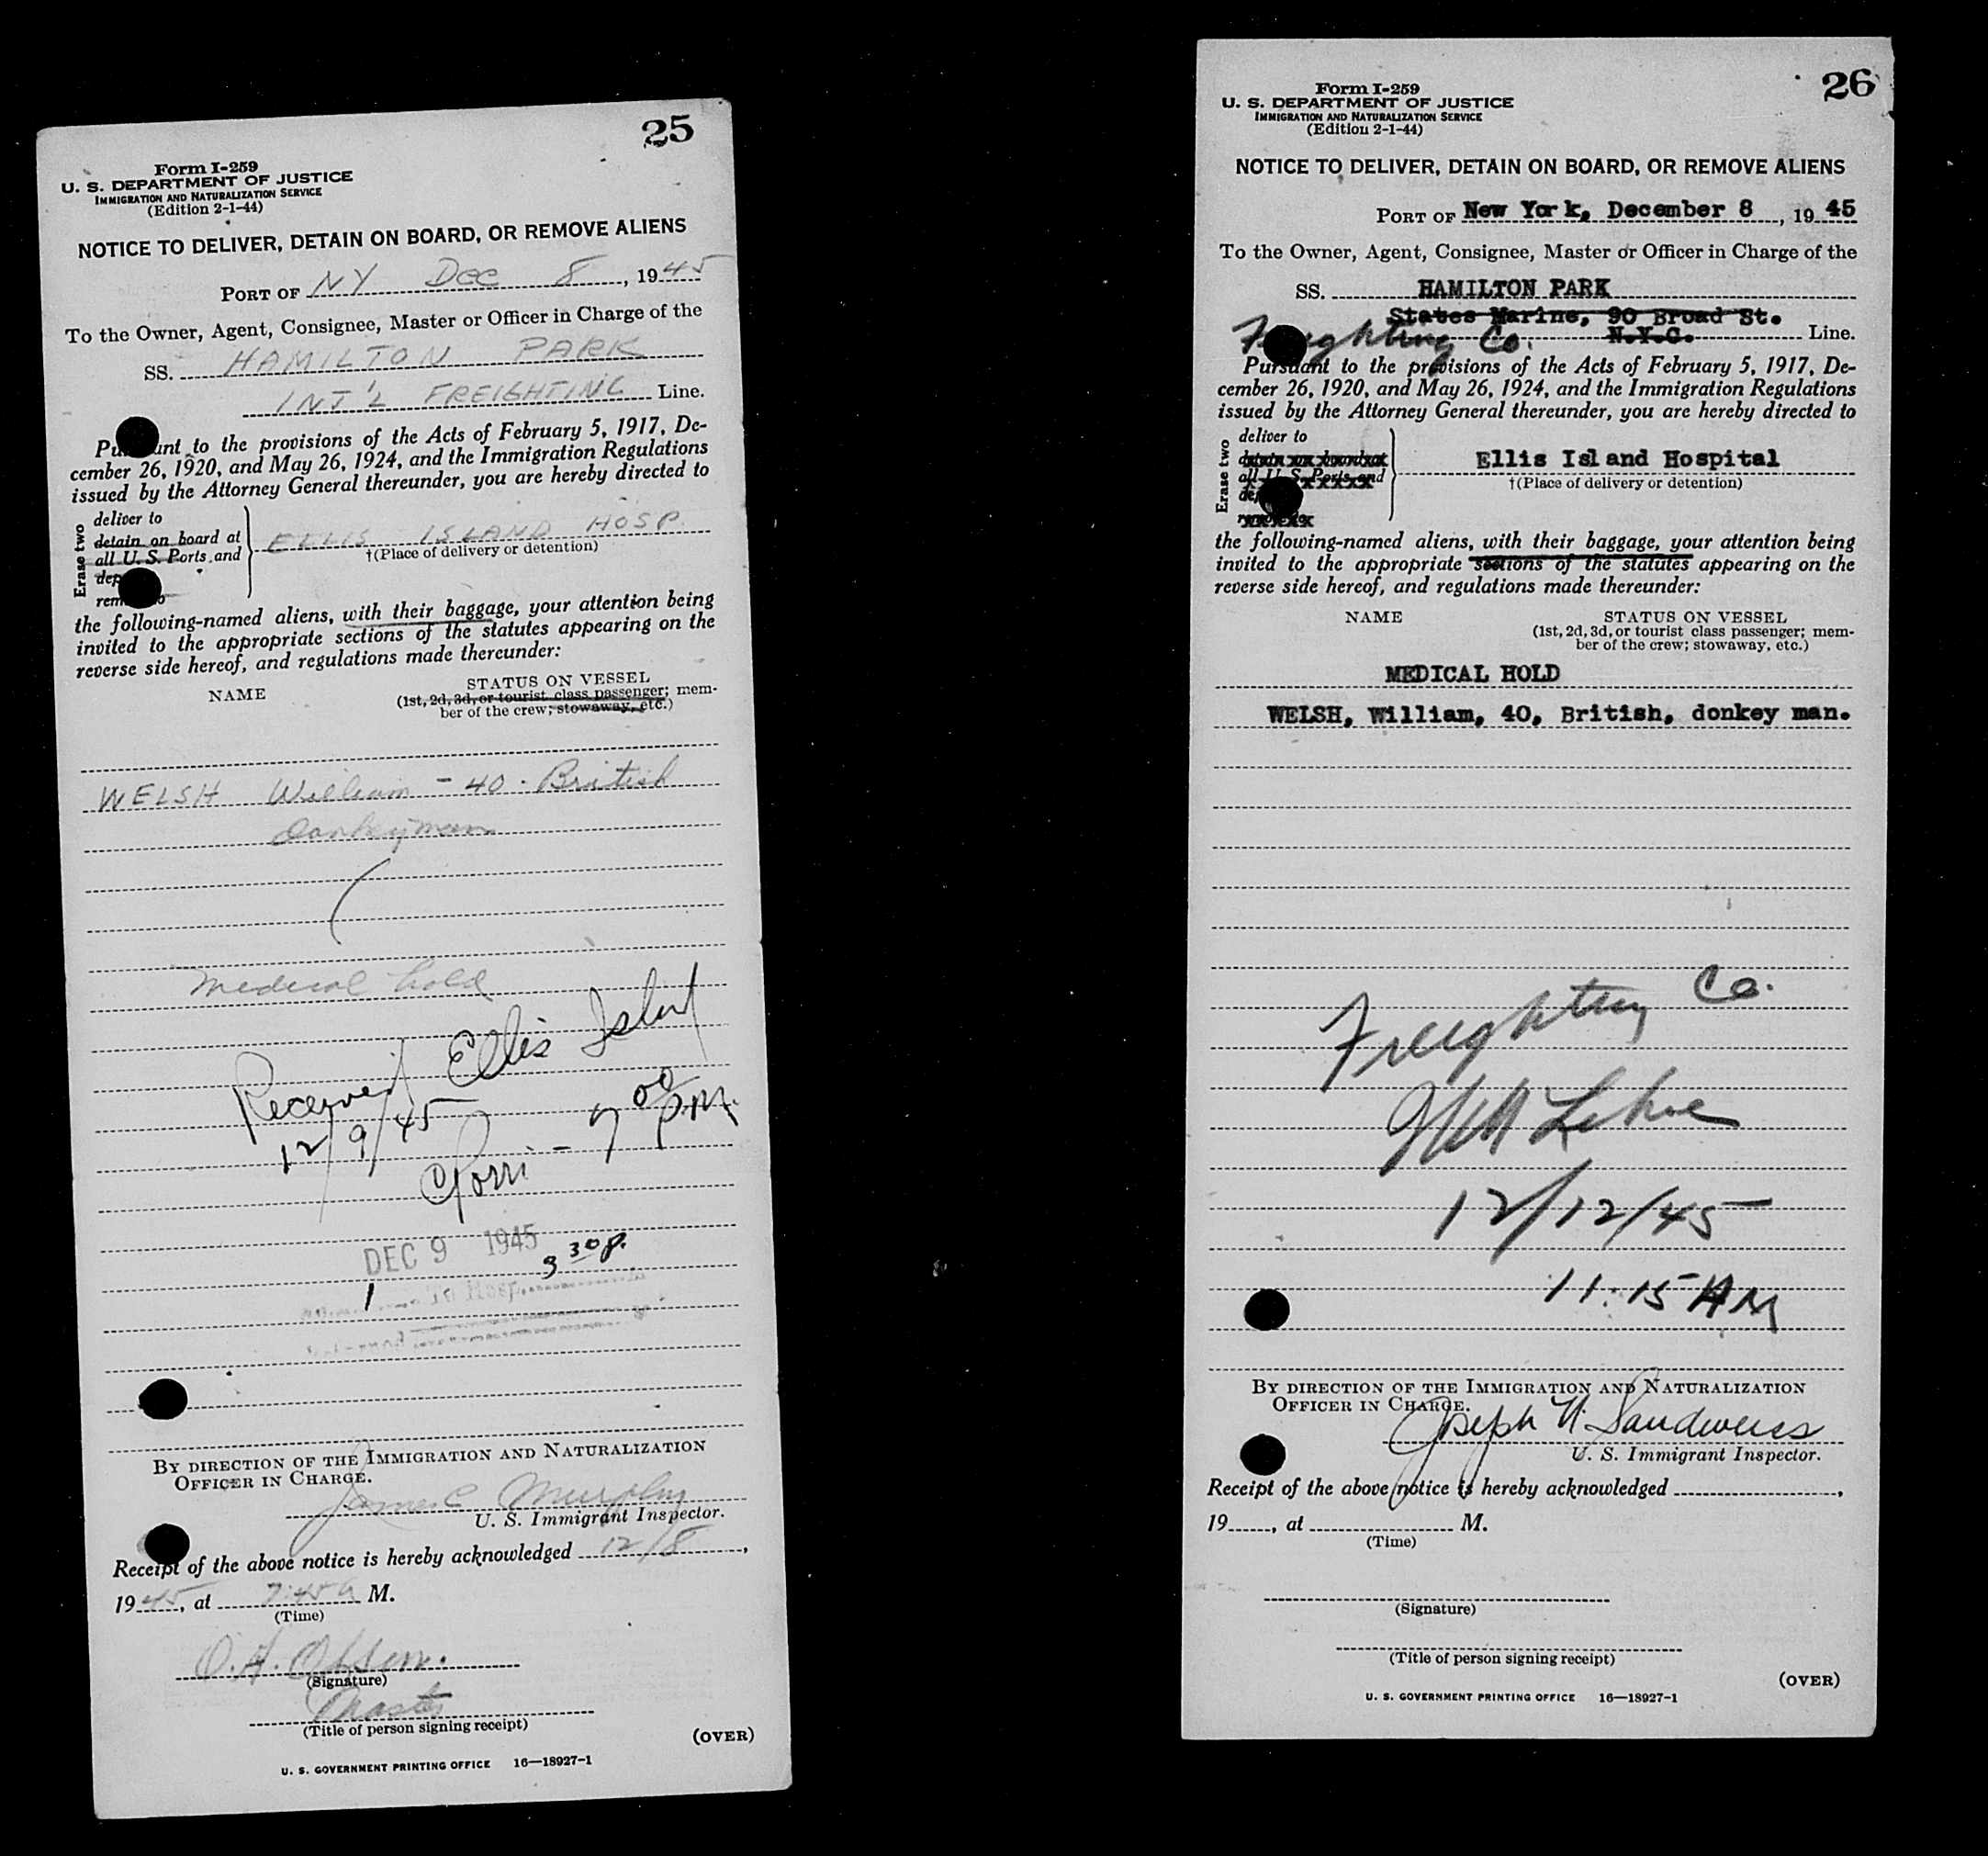 25
Form I-259
U. S. DEPARTMENT OF JUSTICE
IMMIGRATION AND NATURALIZATION SERVICE
(Edition 2-1-44)
NOTICE TO DELIVER, DETAIN ON BOARD, OR REMOVE ALIENS
PORT OF NY Dec 8, 1945
To the Owner, Agent, Consignee, Master or Officer in Charge of the
SS. HAMILTON PARK
INT'L FREIGHTING Line.
to the provisions of the Acts of February 5, 1917, De-
cember 26, 1920, and May 26, 1924, and the Immigration Regulations
issued by the Attorney General thereunder, you are hereby directed to
Erase two
deliver to
detain on board at
all U. S. Ports and
ELLIS ISLAND HOSP
†(Place of delivery or detention)
the following-named aliens, with their baggage, your attention being
invited to the appropriate sections of the statutes appearing on the
reverse side hereof, and regulations made thereunder:
NAME
STATUS ON VESSEL
(1st, 2d, 3d, or tourist class passenger; mem-
ber of the crew; stowaway, etc.)
WELSH William - 40 - British
donkeyman
Medical hold
Received Ellis Island
12/9/45
7 00 P.M.
DEC 9 1945
3 30 p.
1
Hosp.
BY DIRECTION OF THE IMMIGRATION AND NATURALIZATION
OFFICER IN CHARGE.
James C Murphy
U. S. Immigrant Inspector.
Receipt of the above notice is hereby acknowledged 12/8,
1945, at 7:45 a M.
(Time)
O. A. Olsen.
(Signature)
Master
(Title of person signing receipt)
(OVER)
U. S. GOVERNMENT PRINTING OFFICE 16—18927-1
26
Form I-259
U. S. DEPARTMENT OF JUSTICE
IMMIGRATION AND NATURALIZATION SERVICE
(Edition 2-1-44)
NOTICE TO DELIVER, DETAIN ON BOARD, OR REMOVE ALIENS
PORT OF New York, December 8, 1945
To the Owner, Agent, Consignee, Master or Officer in Charge of the
SS. HAMILTON PARK
States Marine, 90 Broad St.
Freighting Co. N.Y.C. Line.
Pursuant to the provisions of the Acts of February 5, 1917, De-
cember 26, 1920, and May 26, 1924, and the Immigration Regulations
issued by the Attorney General thereunder, you are hereby directed to
Erase two
deliver to
detain on board at
all U. S. Ports and
Ellis Island Hospital
†(Place of delivery or detention)
the following-named aliens, with their baggage, your attention being
invited to the appropriate sections of the statutes appearing on the
reverse side hereof, and regulations made thereunder:
NAME
STATUS ON VESSEL
(1st, 2d, 3d, or tourist class passenger; mem-
ber of the crew; stowaway, etc.)
MEDICAL HOLD
WELSH, William, 40, British, donkey man.
Freighting Co.
12/12/45
11:15 AM
BY DIRECTION OF THE IMMIGRATION AND NATURALIZATION
OFFICER IN CHARGE.
Joseph N. Sandweiss
U. S. Immigrant Inspector.
Receipt of the above notice is hereby acknowledged ,
19 , at M.
(Time)
(Signature)
(Title of person signing receipt)
(OVER)
U. S. GOVERNMENT PRINTING OFFICE 16—18927-1